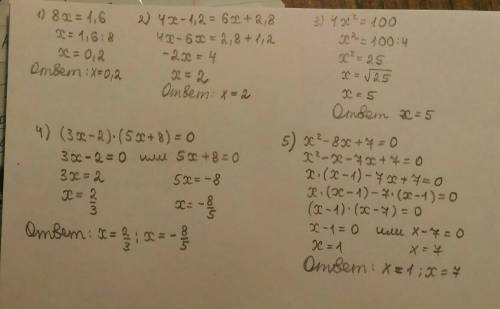 1) 8x = 1,6
x = 1,6 : 8
x = 0,2
Ответ: x = 0,2
2) 4x - 1,2 = 6x + 2,8
4x - 6x = 2,8 + 1,2
-2x = 4
x = 2
Ответ: x = 2
3) 4x² = 100
x² = 100 : 4
x² = 25
x = √25
x = 5
Ответ x = 5
4) (3x - 2) · (5x + 8) = 0
3x - 2 = 0 или 5x + 8 = 0
3x = 2 5x = -8
x = 2/3 x = -8/5
Ответ: x = 2/3 ; x = - 8/5
5) x² - 8x + 7 = 0
x² - x - 7x + 7 = 0
x · (x - 1) - 7x + 7 = 0
x · (x - 1) - 7 · (x - 1) = 0
(x - 1) · (x - 7) = 0
x - 1 = 0 или x - 7 = 0
x = 1 x = 7
Ответ: x = 1 ; x = 7